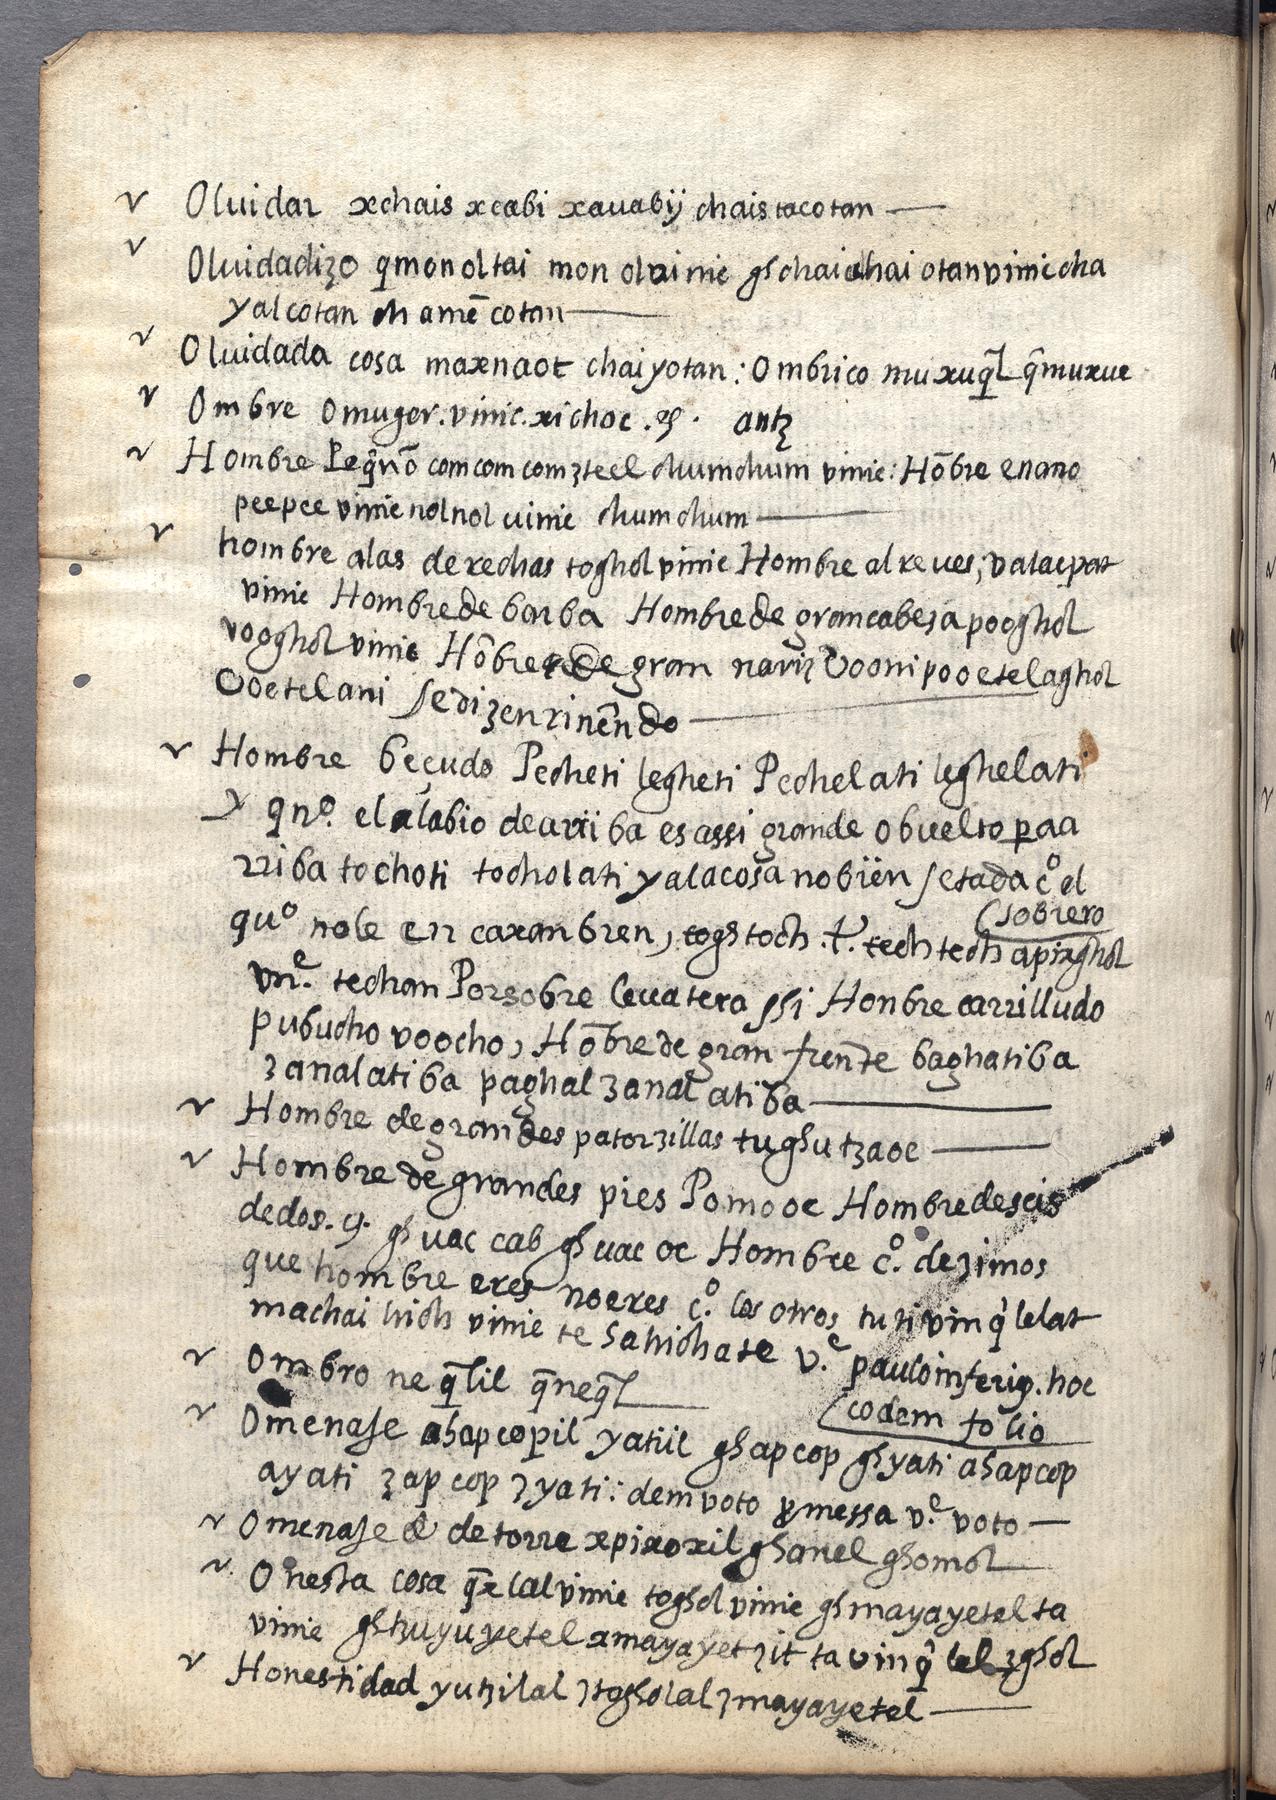 v Oluidar xchais xcabi xauabij chais tacotan
v Oluidadizo qmonoltai mon oluinic gh chai chai otan vinic cha
yalcotan ch amē cotan
v Oluidada cosa maxnaoc chaiyotan: Ombrico muxuq̄l q̄muxue
v Ombre o muger. vinic. xichoc. antz
v Hombre Peq̄ño com com comzteel chumchum vinic: Hōbre enano
peepee vinic nolnol uinic chumchum
v hombre alas derechas toghol vinic Hombre al reues; valacpat
vinic Hombre de barba Hombre de gran cabesa pooghol
vooghol vinic Hōbre de gran nariz vooni pooetelaghol
Ooetelani se dizen rinēndo
v Hombre beçudo Pecheti legheti Pechelati leghelati
y qnº. el alabio de arriba es assi grande o buelto paa
rriba tochoti tocholati y a la cosa nobiēn setada cº el
(sobrero
quº nole en caxan bren, toghtoch .t. techtech apixghol
vnᵉ. techan Por sobre leuatera ssi Honbre carrilludo
pubucho voocho, Hōbre de gran frente baghatiba
zanalatiba paghal zanal atiba
v Hombre de grandes patorzillas tughutzaoc
v Hombre de grandes pies Pomooc Hombre de seis
dedos. q. gh uac cab gh uac oc Hombre cº. dezimos
que hombre eres no eres cº. los otros tu ti vinq̄ lelat
machai hich vinic te sahichate vᵉ. paulo inferiꝯ. hoc
(eodem folio
v Ombro neq̄lil q̄neq̄l
v Omenaje ahapcopil yatiil ghapcop ghyati ahapcop
ayati zapcop zyati: dem voto pmessa vᵉ. voto
v Omenaje de torre xpixoxil ghanel ghomol
v Onesta cosa q̄xlal vinic toghol vinic gh mayayetel ta
vinic ghtzuyuyetel xmayayet zit ta vinq̄ lel zghol
v Honestidad yutzilal ztogholal zmayayetel